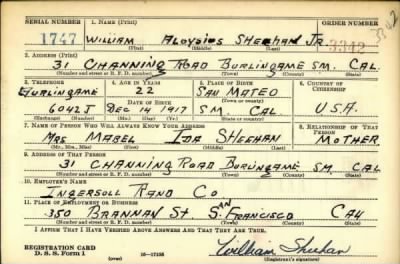 SERIAL NUMBER 1. NAME (Print) ORDER NUMBER
1747 WILLIAM ALOYSIUS SHEEHAN JR. 3342
(First) (Middle) (Last)
2. ADDRESS (Print)
31 CHANNING ROAD BURLINGAME S.M. CAL.
(Number and street or R. F. D. number) (Town) (County) (State)
3. TELEPHONE 4. AGE IN YEARS 5. PLACE OF BIRTH 6. COUNTRY OF CITIZENSHIP
BURLINGAME 22 SAN MATEO
DATE OF BIRTH (Town or county)
6042J DEC 14 1917 S.M. CAL. U.S.A.
(Exchange) (Number) (Mo.) (Day) (Yr.) (State or country)
7. NAME OF PERSON WHO WILL ALWAYS KNOW YOUR ADDRESS 8. RELATIONSHIP OF THAT PERSON
MRS MABEL IDA SHEEHAN MOTHER
(Mr., Mrs., Miss) (First) (Middle) (Last)
9. ADDRESS OF THAT PERSON
31 CHANNING ROAD BURLINGAME S.M. CAL
(Number and street or R. F. D. number) (Town) (County) (State)
10. EMPLOYER'S NAME
INGERSOLL RAND CO
11. PLACE OF EMPLOYMENT OR BUSINESS
350 BRANNAN ST SAN FRANCISCO CAL
(Number and street or R. F. D. number) (Town) (County) (State)
I AFFIRM THAT I HAVE VERIFIED ABOVE ANSWERS AND THAT THEY ARE TRUE.
REGISTRATION CARD
D. S. S. Form 1 16—17105 William Sheehan
(over) (Registrant's signature)